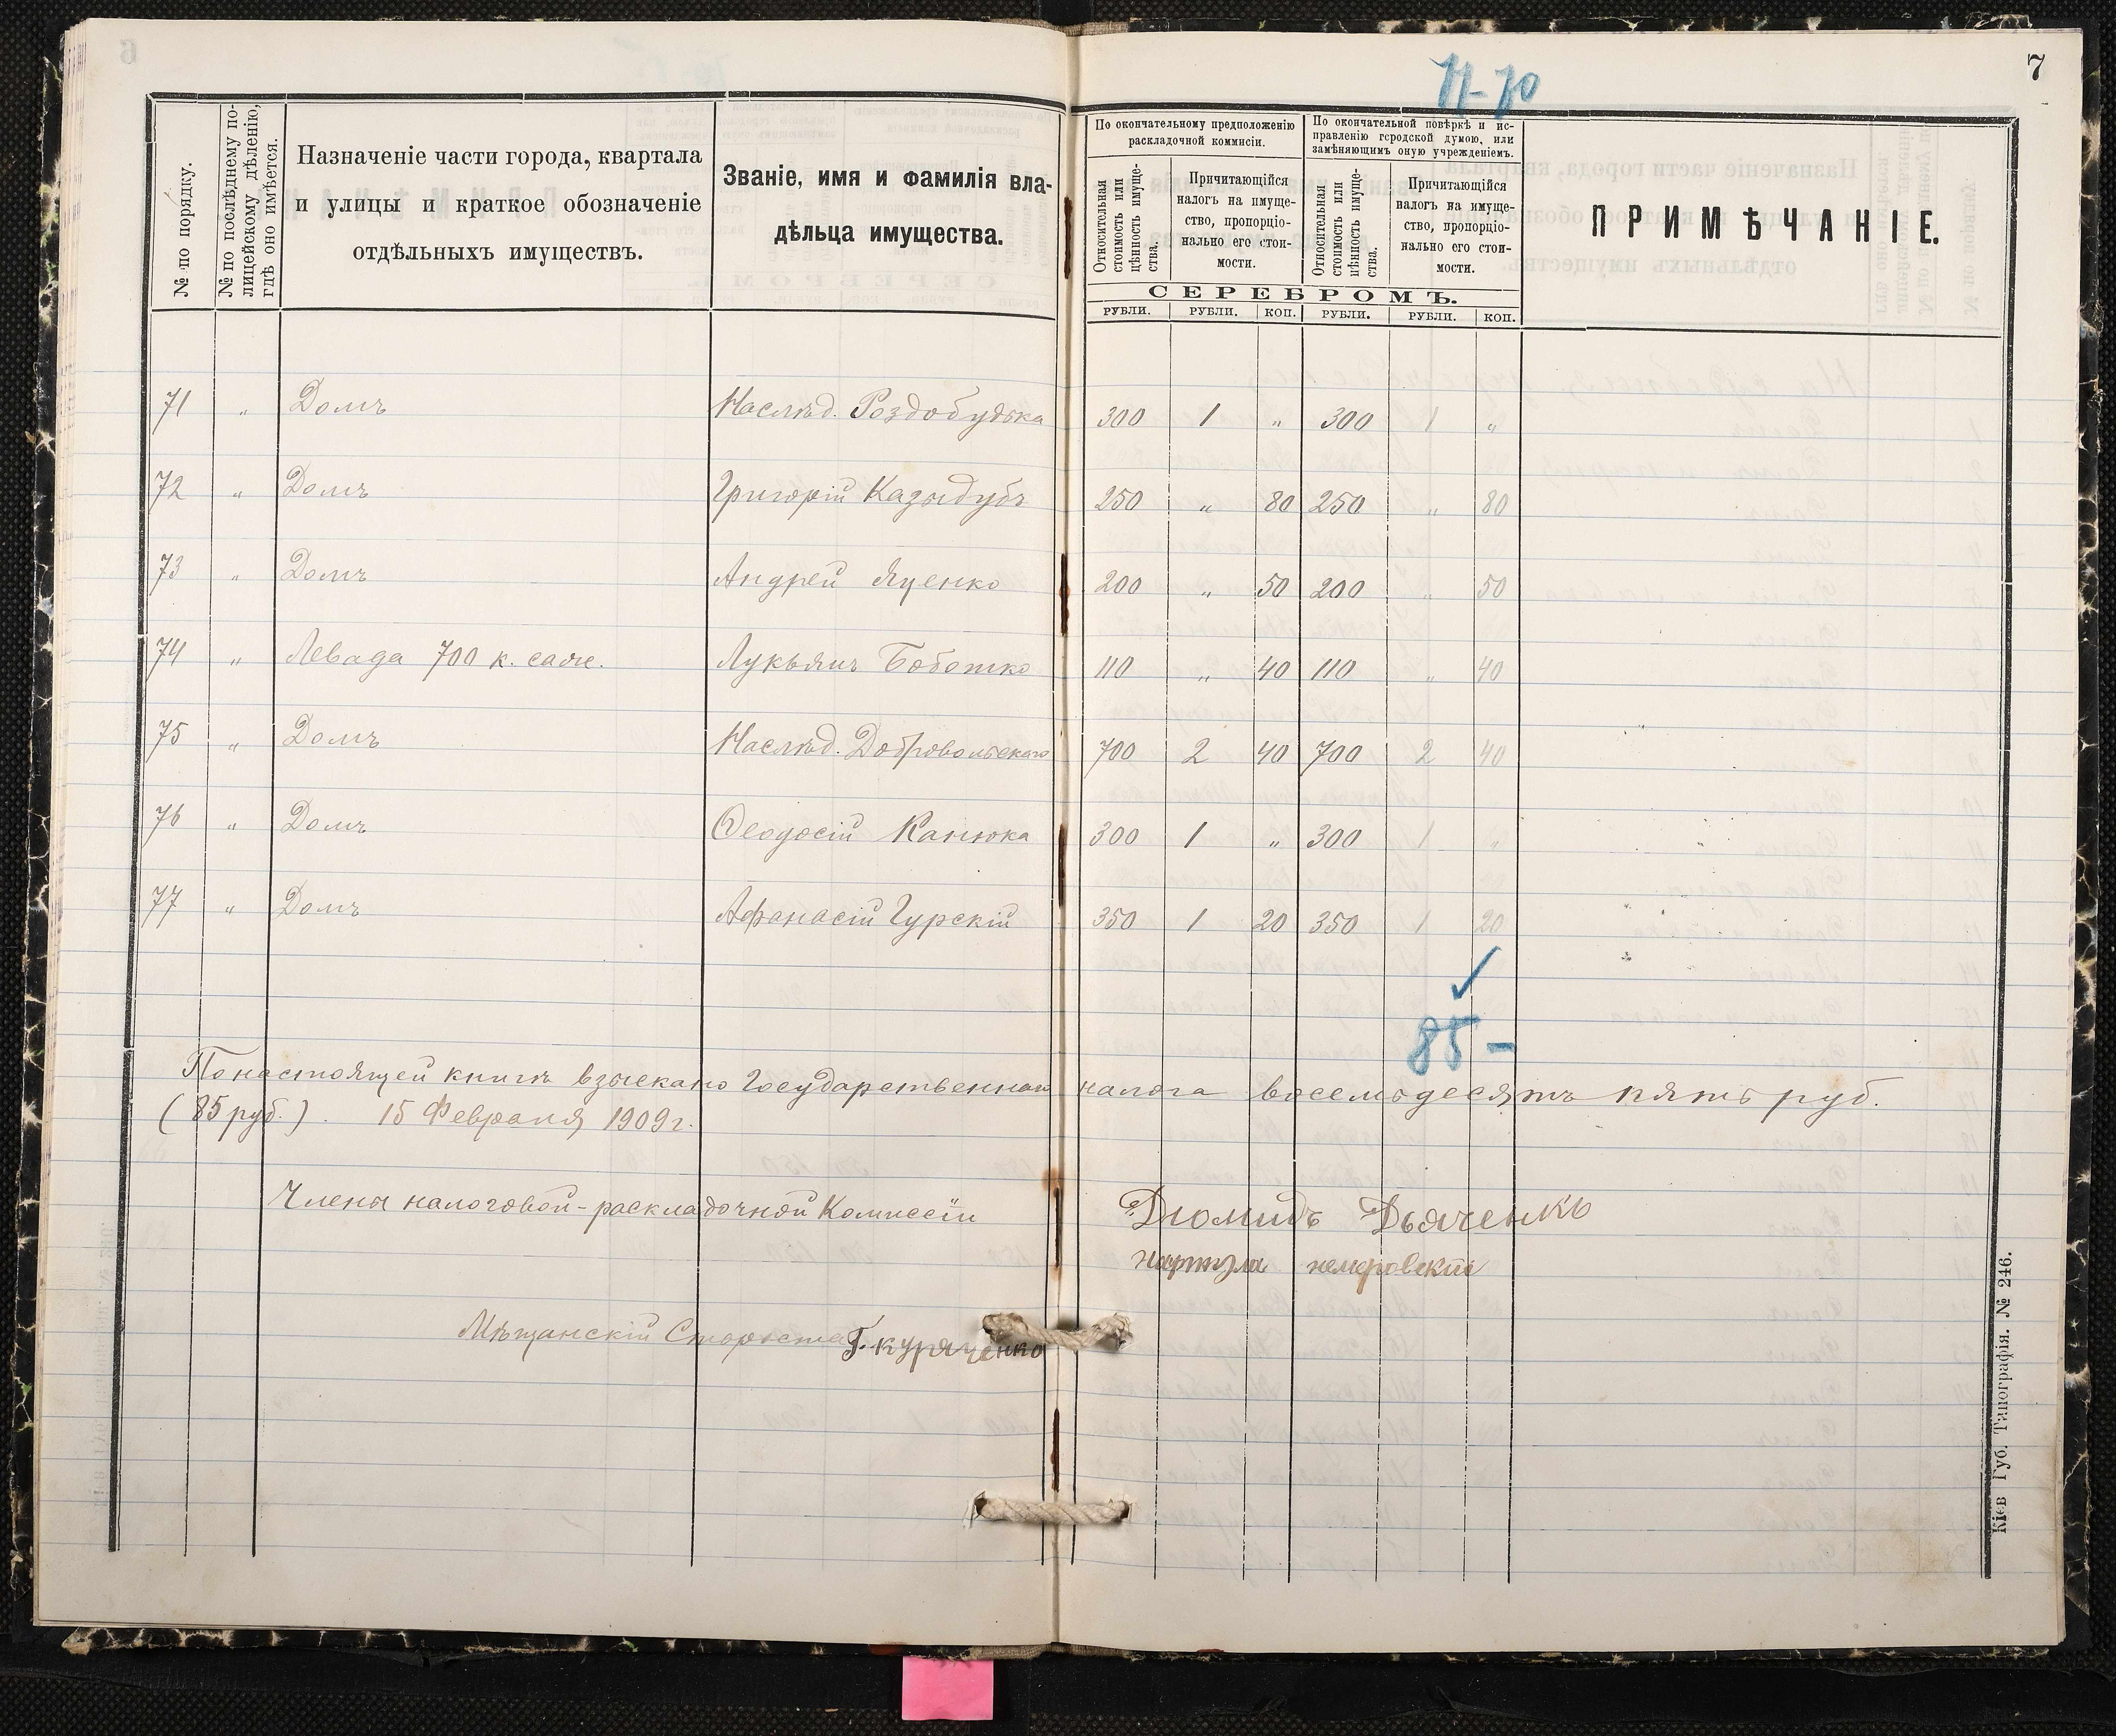 7
77-70
№ по порядку.
№ по послѣднему по-
лицейскому дѣленію,
гдѣ оно имѣется.
Назначеніе части города, квартала
и улицы и краткое обозначеніе
отдѣльныхъ имуществъ.
Званіе, имя и фамилія вла-
дѣльца имущества.
По окончательному предположенію
раскладочной коммисіи.
Относительная
стоимость или
цѣнность имуще-
ства.
Причитающійся
налогъ на имуще-
ство, пропорціо-
нально его стои-
мости.
По окончательной повѣркѣ и ис-
правленію городской думою, или
замѣняющимъ оную учрежденіемъ.
Относительная
стоимость или
цѣнность имуще-
ства.
Причитающійся
налогъ на имуще-
ство, пропорціо-
нально его стои-
мости.
СЕРЕБРОМЪ.
РУБЛИ. РУБЛИ. КОП. РУБЛИ. РУБЛИ. КОП.
ПРИМѢЧАНІЕ.
71 " Домъ Наслѣд. Роздобудька 300 1 " 300 1 "
72 " Домъ Григорій Казыдубъ 250 " 80 250 " 80
73 " Домъ Андрей Яценко 200 " 50 200 " 50
74 " Левада 700 к. саж. Лукьянъ Боботко 110 " 40 110 " 40
75 " Домъ Наслѣд. Добровольскаго 700 2 40 700 2 40
76 " Домъ Ѳеодосій Канюка 300 1 " 300 1 "
77 " Домъ Афанасій Гурскій 350 1 20 350 1 20
85-
По настоящей книгѣ взыскано Государственнаго налога восемьдесятъ пять руб.
(85 руб.). 15 Февраля 1909 г.
Члены налоговой-раскладочной Комиссіи Дюмидъ Дьяченкъ
Мѣщанскій Староста Г. Куряченко
Кіев Губ. Типографія. № 246.